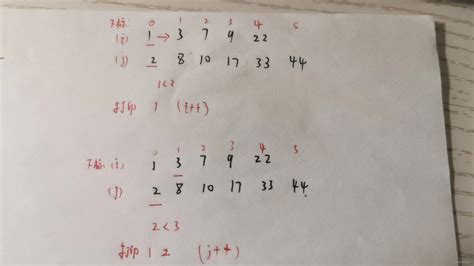 下标 0 1 2 3 4 5
(i) 1 → 3 7 9 22
(j) 2 8 10 17 33 44
1<2
打印 1 (i++)
0 1 2 3 4 5
下标 (i) 1 3 7 9 22
(j) 2 8 10 17 33 44
2<3
打印 1 2 (j++)